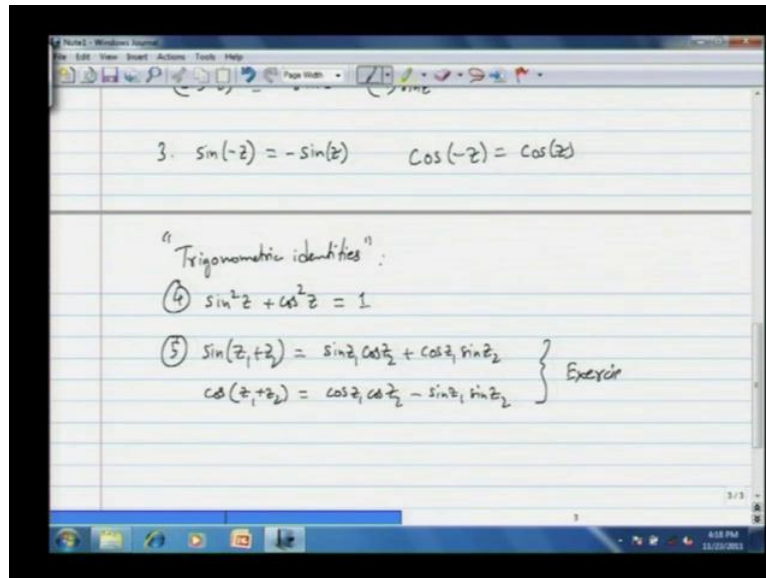 Note1 - Windows Journal
File Edit View Insert Actions Tools Help
Page Width
3. sin(-z) = -sin(z) cos(-z) = cos(z)
"Trigonometric identities":
④ sin²z + cos²z = 1
⑤ sin(z₁+z₂) = sinz₁ cosz₂ + cosz₁ sinz₂
cos(z₁+z₂) = cosz₁ cosz₂ - sinz₁ sinz₂ } Exercise
3/3
3
4:18 PM
11/23/2011